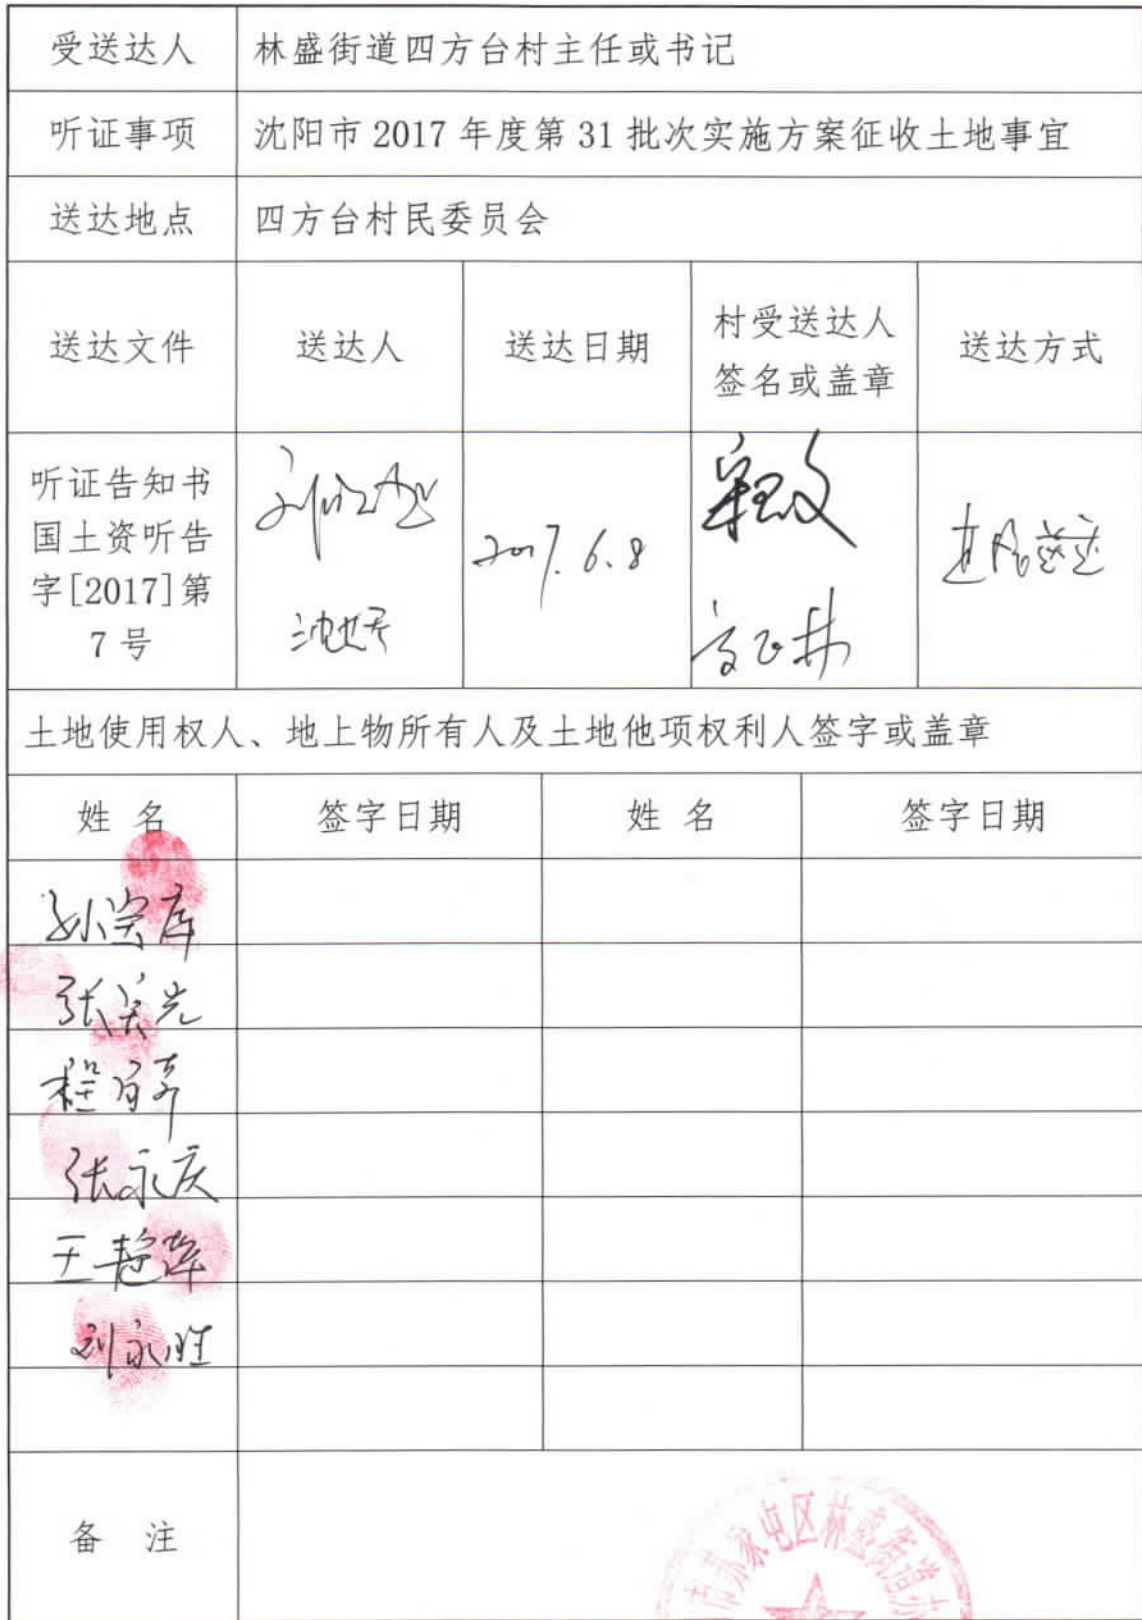 受送达人 林盛街道四方台村主任或书记
听证事项 沈阳市2017年度第31批次实施方案征收土地事宜
送达地点 四方台村民委员会
送达文件 送达人 送达日期 村受送达人 送达方式
签名或盖章
听证告知书
国土资听告
字[2017]第
7号
2017.6.8
直接送达
土地使用权人、地上物所有人及土地他项权利人签字或盖章
姓 名 签字日期 姓 名 签字日期
张永庆
王艳萍
刘永胜
备 注
家屯区林盛街道